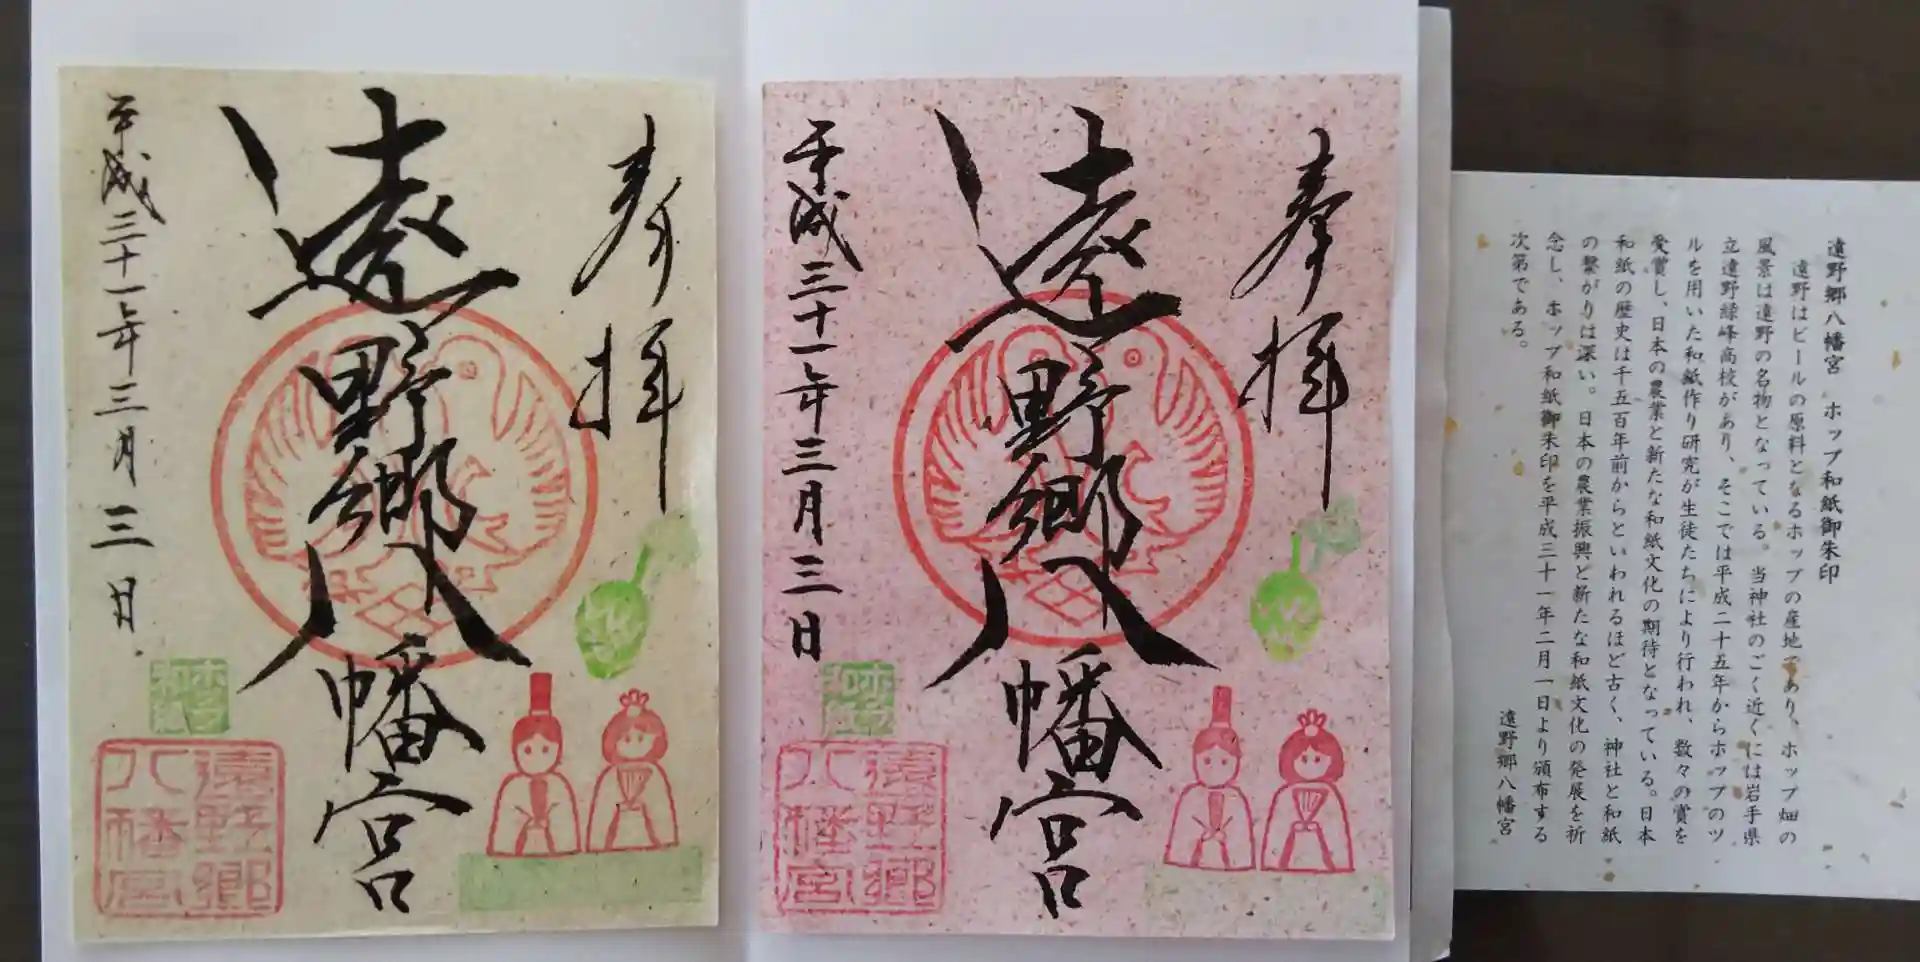 遠野郷八幡宮 ホップ和紙御朱印
遠野はビールの原料となるホップの産地であり、ホップ畑の
風景は遠野の名物となっている。当神社のごく近くには岩手県
立遠野緑峰高校があり、そこでは平成二十五年からホップのツ
ルを用いた和紙作り研究が生徒たちにより行われ、数々の賞を
受賞し、日本の農業と新たな和紙文化の期待となっている。日本
和紙の歴史は千五百年前からといわれるほど古く、神社と和紙
の繋がりは深い。日本の農業振興と新たな和紙文化の発展を祈
念し、ホップ和紙御朱印を平成三十一年二月一日より頒布する
次第である。
遠野郷八幡宮
奉拝
遠野郷八幡宮
平成三十一年三月三日
遠野郷
八幡宮
奉拝
遠野郷八幡宮
平成三十一年三月三日
遠野郷
八幡宮